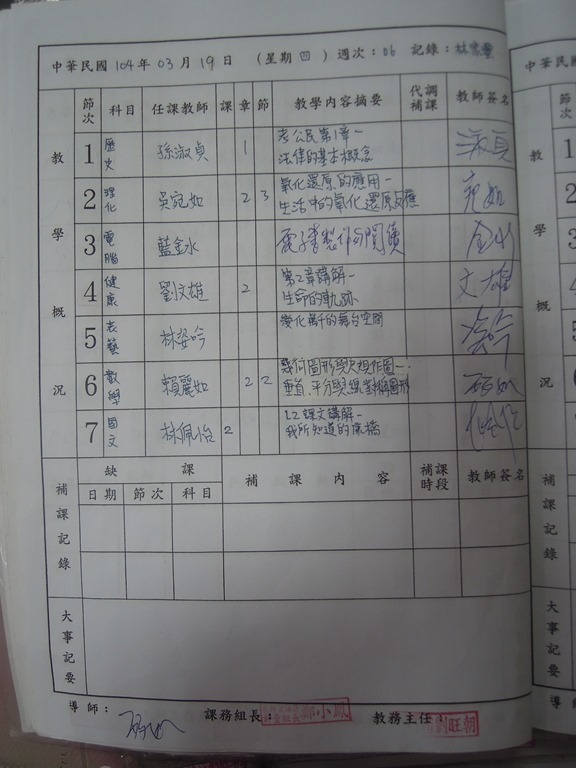 中華民國 104 年 03 月 19 日 (星期 四) 週次：06 記錄：林
教學概況
節次 科目 任課教師 課 章 節 教學內容摘要 代調補課 教師簽名
1 歷史 孫淑貞 1 考公民第1章－ 淑貞
法律的基本概念
2 理化 吳宛如 2 3 氧化還原的應用－ 宛如
生活中的氧化還原反應
3 電腦 藍金水 電子書製作與閱讀
4 健康 劉文雄 2 第2章講解－ 文雄
生命的軌跡
5 表藝 林姿吟 變化萬千的舞台空間
6 數學 賴麗如 2 2 幾何圖形與尺規作圖－
垂直、平分與線對稱圖形
7 國文 林佩怡 2 L2 課文講解－
我所知道的康橋
補課記錄
缺課 補課內容 補課時段 教師簽名
日期 節次 科目
大事記要
導師： 課務組長： 鄭小鳳 教務主任： 劉旺朝
中華民
節次
教學概況
1
2
3
4
5
6
7
補課記錄
日
大事記要
導師